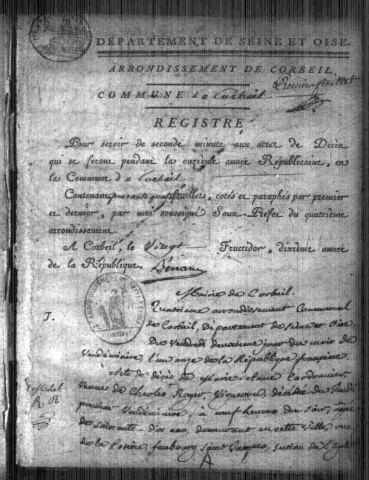 DÉPARTEMENT DE SEINE ET OISE.
ARRONDISSEMENT DE CORBEIL.
Premier feuillet
COMMUNE de Corbeil
REGISTRE
Pour servir de seconde minute aux actes de Décès
qui se feront pendant la onzième année Républicaine, en
la Commune de Corbeil
Contenant quarante quatre feuillets, cotés et paraphés par premier
et dernier, par moi soussigné Sous-Préfet du quatrième
arrondissement
A Corbeil, le Vingt Fructidor, dixième année
de la République,
Mairie de Corbeil.
Quatrieme arrondissement Communal
de Corbeil, Département de Seine et Oise
Du Vendredi deuxieme jour du mois de
Vendémiaire l'an onze de la République française.
1.
Acte de décès de Marie Anne
veuve de Charles Royer, Vigneron, décédée du Jeudi
premier Vendémiaire, à neuf heures du soir, agée
de soixante dix ans, demeurant en cette Ville, rue
de la faubourg Saint Jacques, section de